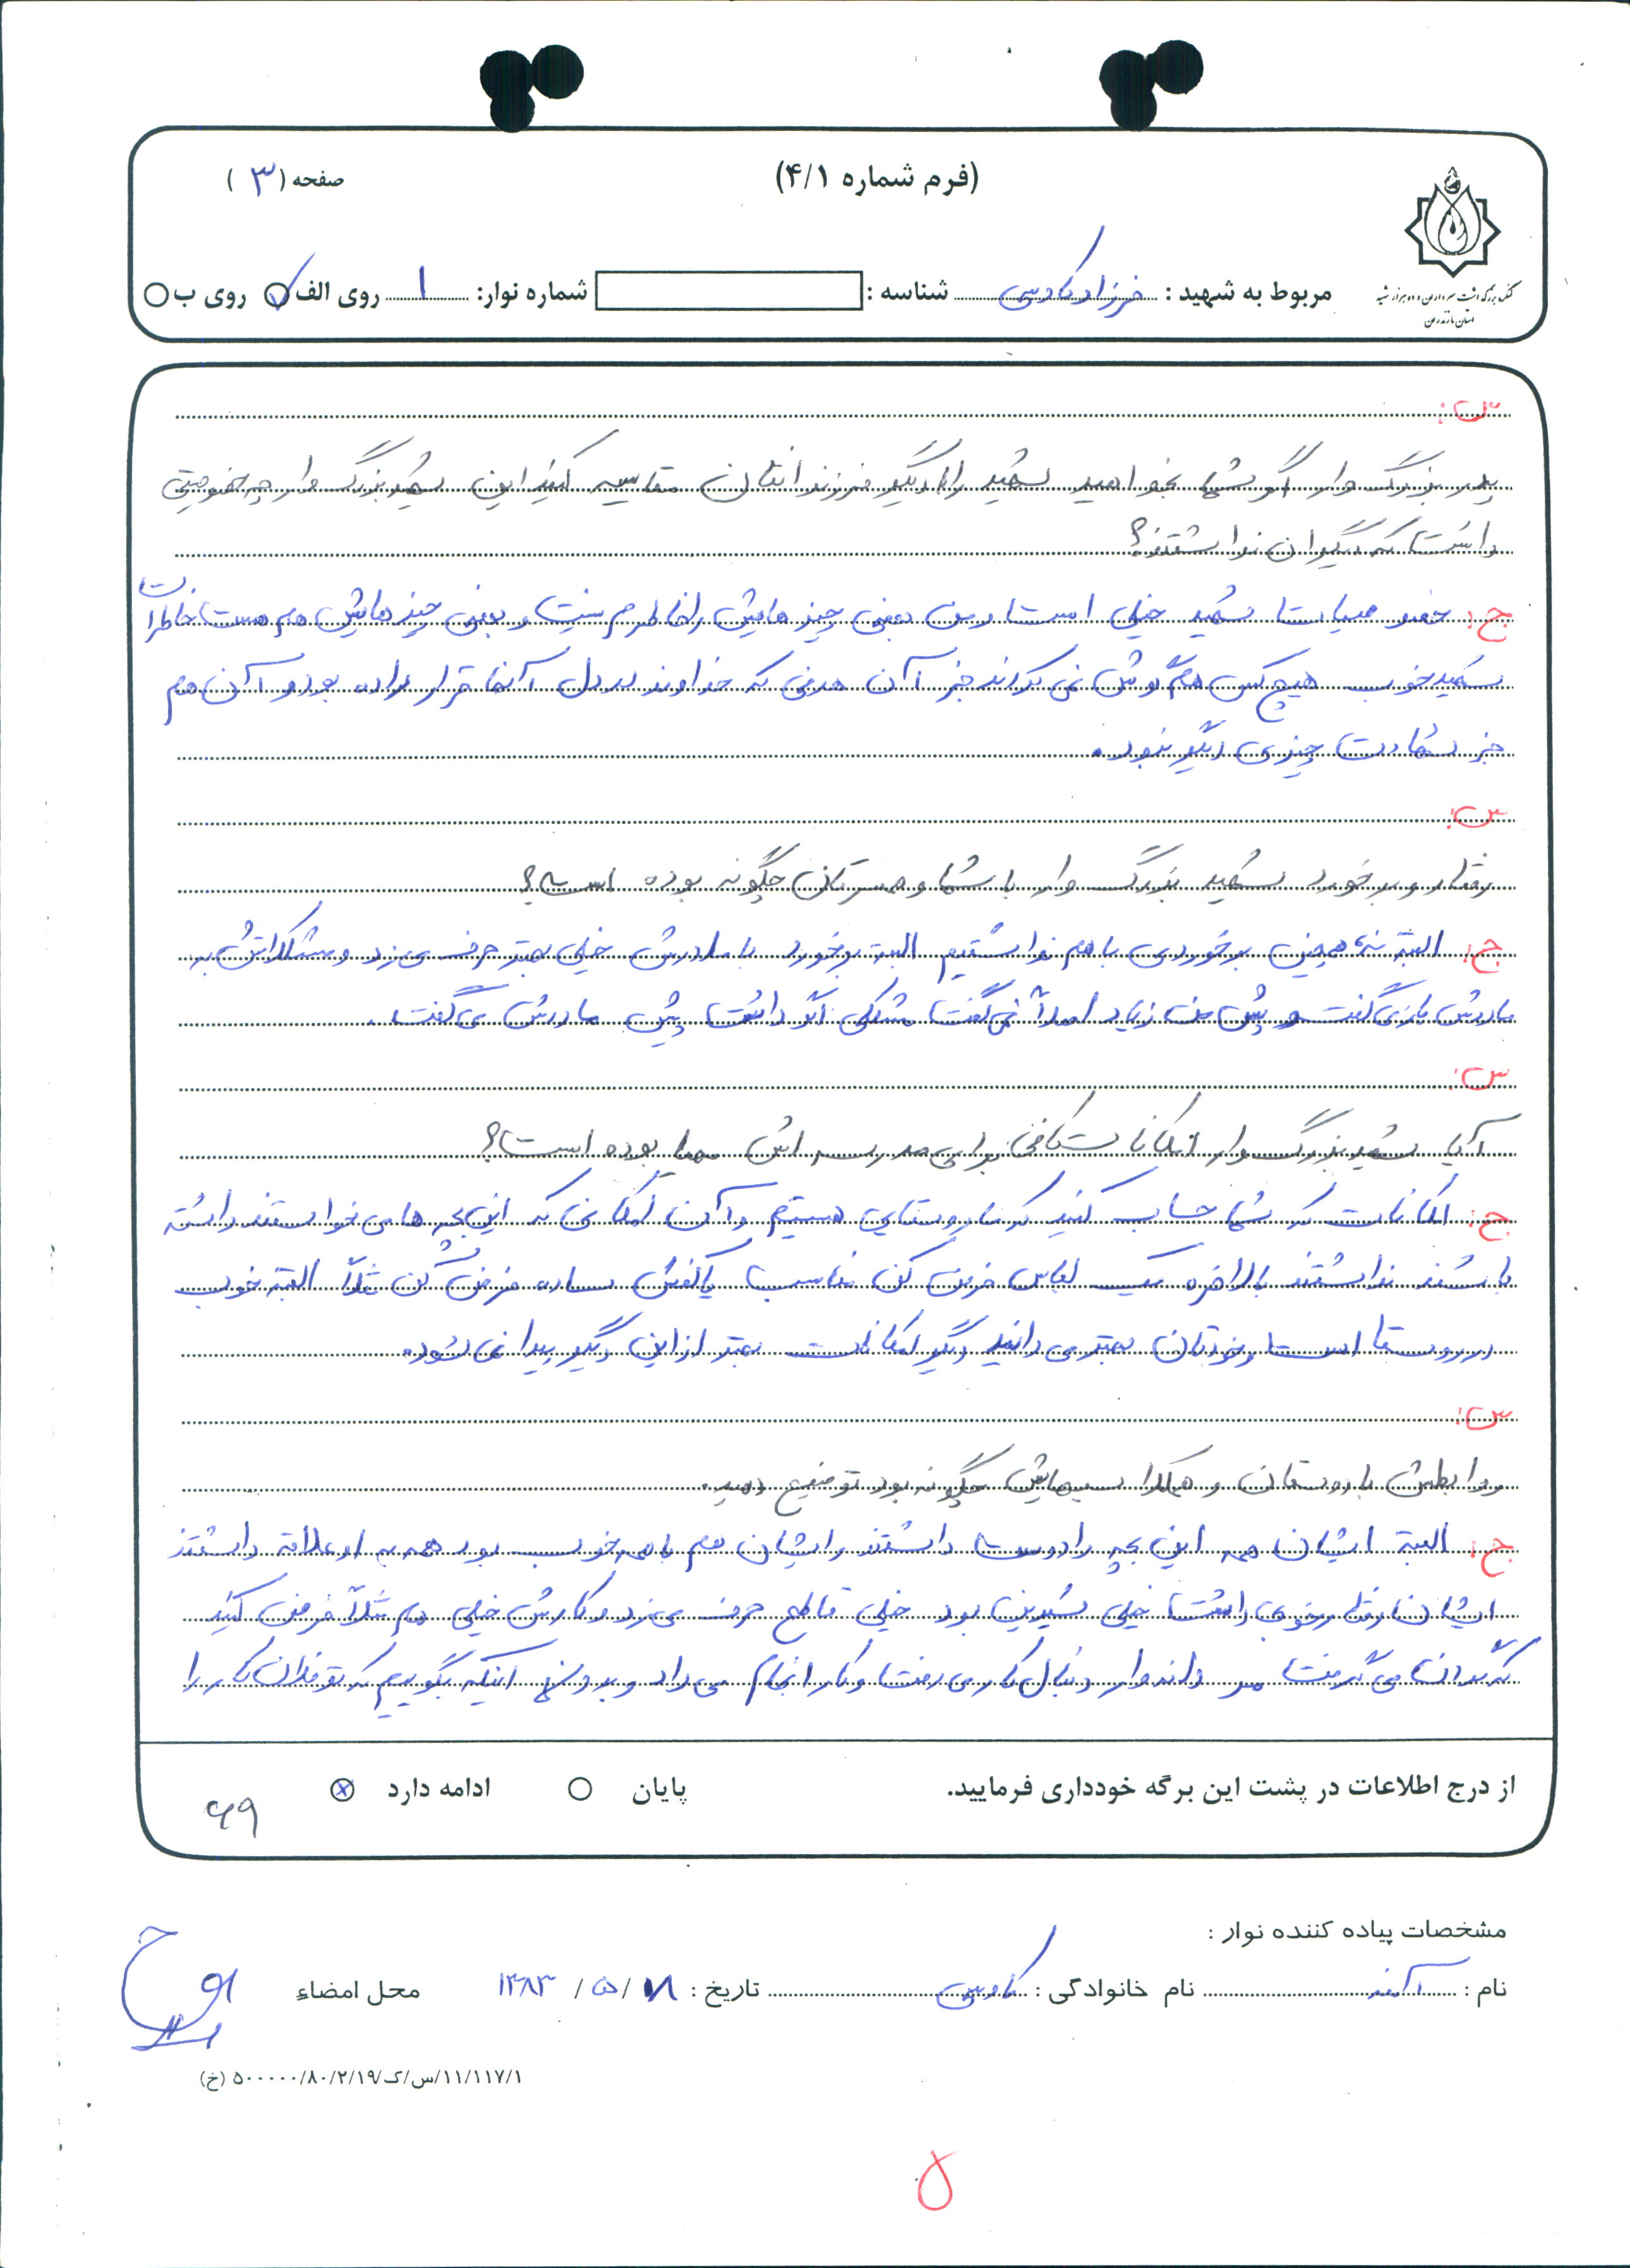 (فرم شماره ۴/۱)
صفحه (۳)
کنگره بزرگداشت سرداران و ده هزار شهید
استان مازندران
مربوط به شهید : فرزاد کاوسی شناسه : شماره نوار: ۱ روی الف روی ب
س:
پدر بزرگ وار اگر شما بخواهید شهید را با دیگر فرزندانتان مقایسه کنید این شهید بزرگ وار چه خصوصیتی
داشت که دیگران نداشتند؟
ج: خصوصیات شهید خیلی است ومن بعضی چیزهایش را خاطرم نیست و بعضی چیزهایش هم هست خاطرات
شهید خوب هیچ کس هم گوش نمی کردند جز آن هدفی که خداوند در دل آنها قرار داده بود و آن هم
جز شهادت چیزی دیگر نبود.
س:
رفتار و برخورد شهید بزرگ وار با شما و همسرتان چگونه بوده است؟
ج: البته نه همچین برخوردی با هم نداشتیم البته برخورد با مادرش خیلی بهتر حرف می زد و مشکلاتش به
مادرش باز می گفت و پیش من زیاد اصلاً نمی گفت مشکلی اگر داشت پیش مادرش می گفت.
س:
آیا شهید بزرگ وار امکانات کافی برای مدرسه اش مهیا بوده است؟
ج: امکانات که شما حساب کنید که ما روستایی هستیم و آن امکانی که این بچه ها می خواستند داشته
باشند نداشتند بالاخره یک لباس فرض کن مناسب یا کفش ساده فرض کن مثلاً البته خوب
در روستا است و خودتان بهتر می دانید دیگر امکانات بهتر از این دیگر پیدا نمی شود.
س:
روابطش با دوستان و همکلاسیهایش چگونه بود توضیح دهید.
ج: البته ایشان همه این بچه را دوست داشتند و ایشان هم با همه خوب بود همه به او علاقه داشتند
ایشان رفتار خوبی داشت خیلی شیرین بود خیلی قاطع حرف می زد و کارش خیلی هم مثلاً فرض کنید
گردن می گرفت دنبال کار می رفت و کار انجام می داد و بدون اینکه بگوییم که تو فلان کار را
از درج اطلاعات در پشت این برگه خودداری فرمایید. پایان ادامه دارد
۶۹
مشخصات پیاده کننده نوار :
نام : آمنه نام خانوادگی : کاوسی تاریخ : ۱۸/ ۵/ ۱۳۸۳ محل امضاء
۵۰۰۰۰۰/۸۰/۲/۱۹/س/ک/۱۱/۱۱۷/۱ (خ)
۵